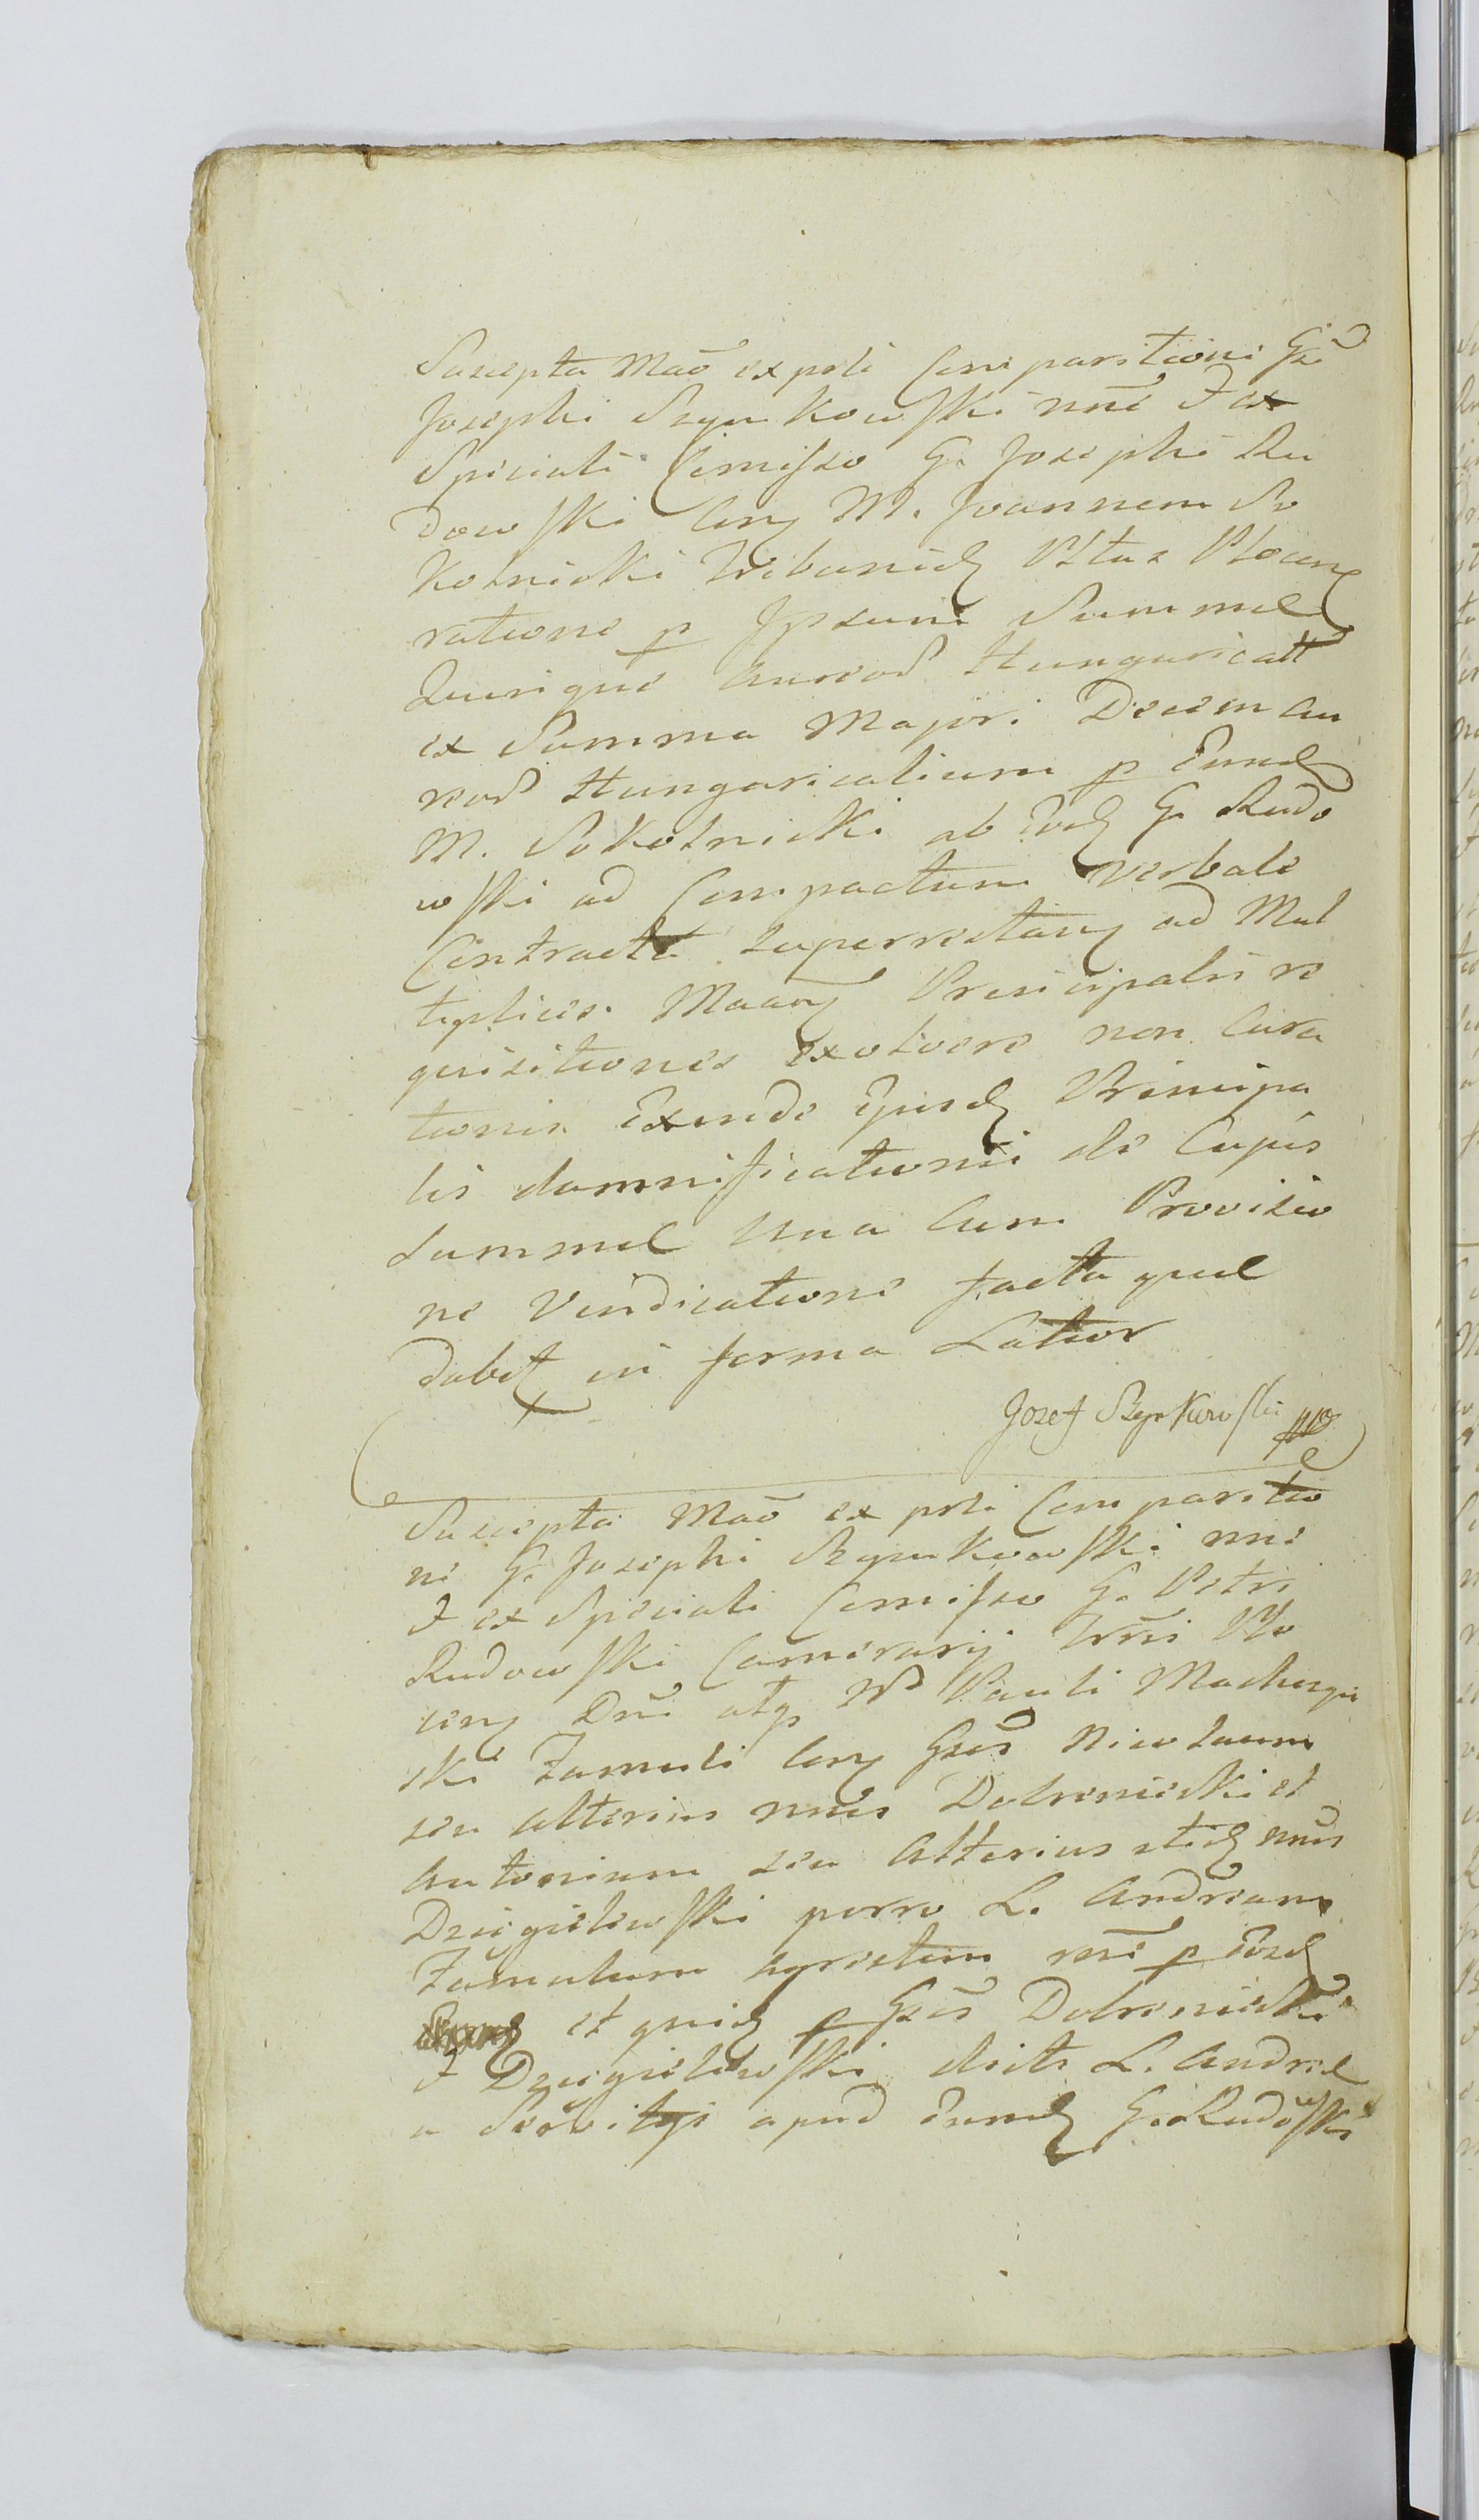 Suscepta Mãõ ex psti Comparitioni Gsi
Josephi Szymkowski nnẽ & ex
Speciali Comisso G. Josephi Ru
dowski Conz M. Joannem So
kolnicki Tribunidz Pltus Plocenz
ratione p Ipsum Summae
Quinque Aureor Hungaricall
ex Summa Majori Decem Au
reor Hungaricalium p Eundz
M. Sokolnicki ab Eodz G. Rudo
wski ad Compactum verbale
Contracta superrestanz ad Mul
tiplices Maanz Principalis re
quisitiones exolvere non Cura
tionis Exinde Ejusdz Principa
lis damnificationis de Cujus
summae una Cum Provisio
ne Vindicatione facta quae
dabit in forma Latior
Jozef Szymkowski mp
Suscepta Mãõ ex psti Comparitio
ni G. Josephi Szymkowski nnẽ
& ex Speciali Comisso G. Petri
Rudowski Camerarij Trrẽi Plo
cenz Dni atq Nr Pauli
ski Famuli Conz Gsẽs Nicolaum
seu alterius nnĩs Dobrzeniecki et
Antonium seu Alterius itidz nnĩs
Dzięgielewski porro L. Andream
Famulum Agrestem rnẽ p Eosdz
et quidz p Gsẽs Dobrzeniecki
& Dzięgielewski dicti L. Andreae
a Servitijs apud Eundz G. Rudowski